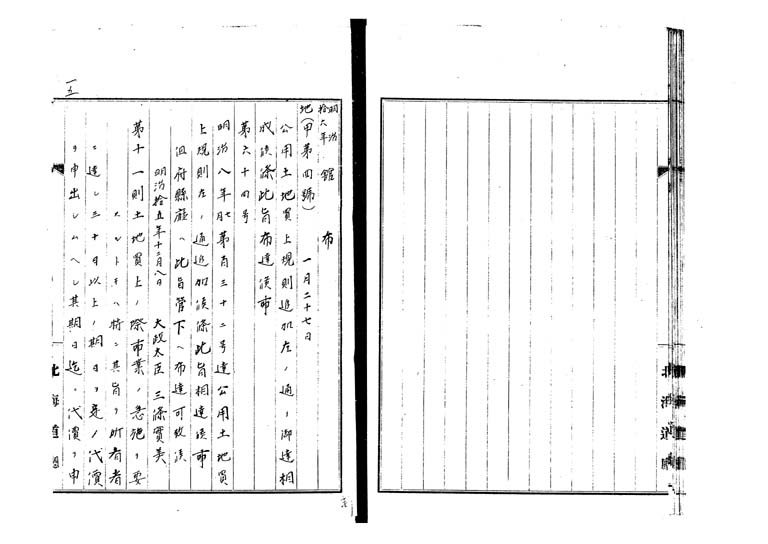 明治
拾六年 館 布
地(甲第四號) 一月二十七日
公用土地買上規則追加左ノ通リ御達相
成候條此旨布達候事
第六十四号
明治八年七月第百三十二号達公用土地買
上規則左ノ通追加候條此旨相達候事
但府縣廳ハ此旨管下ヘ布達可致候
明治拾五年十二月八日
太政大臣三條實美
第十一則土地買上ノ際市業ノ急施ヲ要
スルトキハ特ニ其旨ヲ所有者
ニ達シ三十日以上ノ期日ヲ定メ代價
ヲ申出シムヘシ其期日迄ニ代價ヲ申
一五
北海道廳
北海道廳